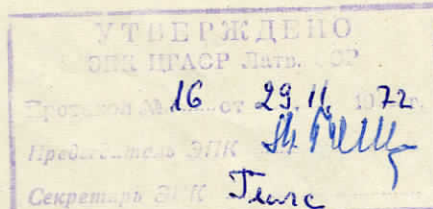 УТВЕРЖДЕНО
ЭПК ЦГАОР Латв. ССР
Протокол № 16 от 29.11. 1972 г.
Председатель ЭПК
Секретарь ЭПК